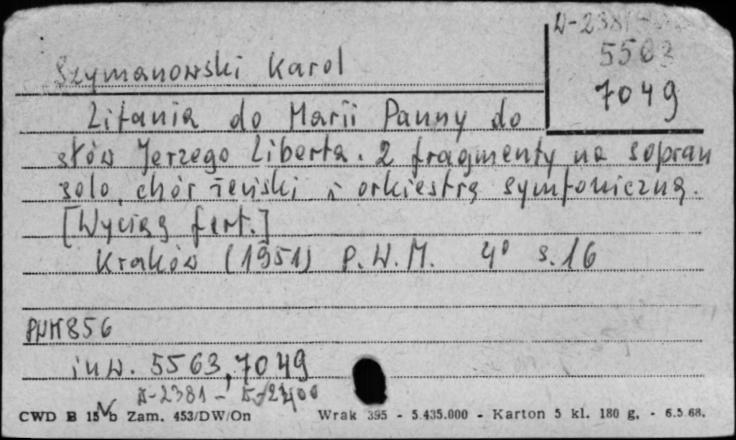 W-2381
5563
7049
Szymanowski Karol
Litania do Marii Panny do
słów Jerzego Liberta. 2 fragmenty na sopran
solo, chór żeński i orkiestrą symfoniczną.
[Wyciąg fort.]
Kraków (1951) P.W.M. 4° s. 16
PWM 856
inw. 5563, 7049
A-2381 -
CWD B 15 b Zam. 453/DW/On Wrak 395 - 5.435.000 - Karton 5 kl. 180 g. - 6.5.68.